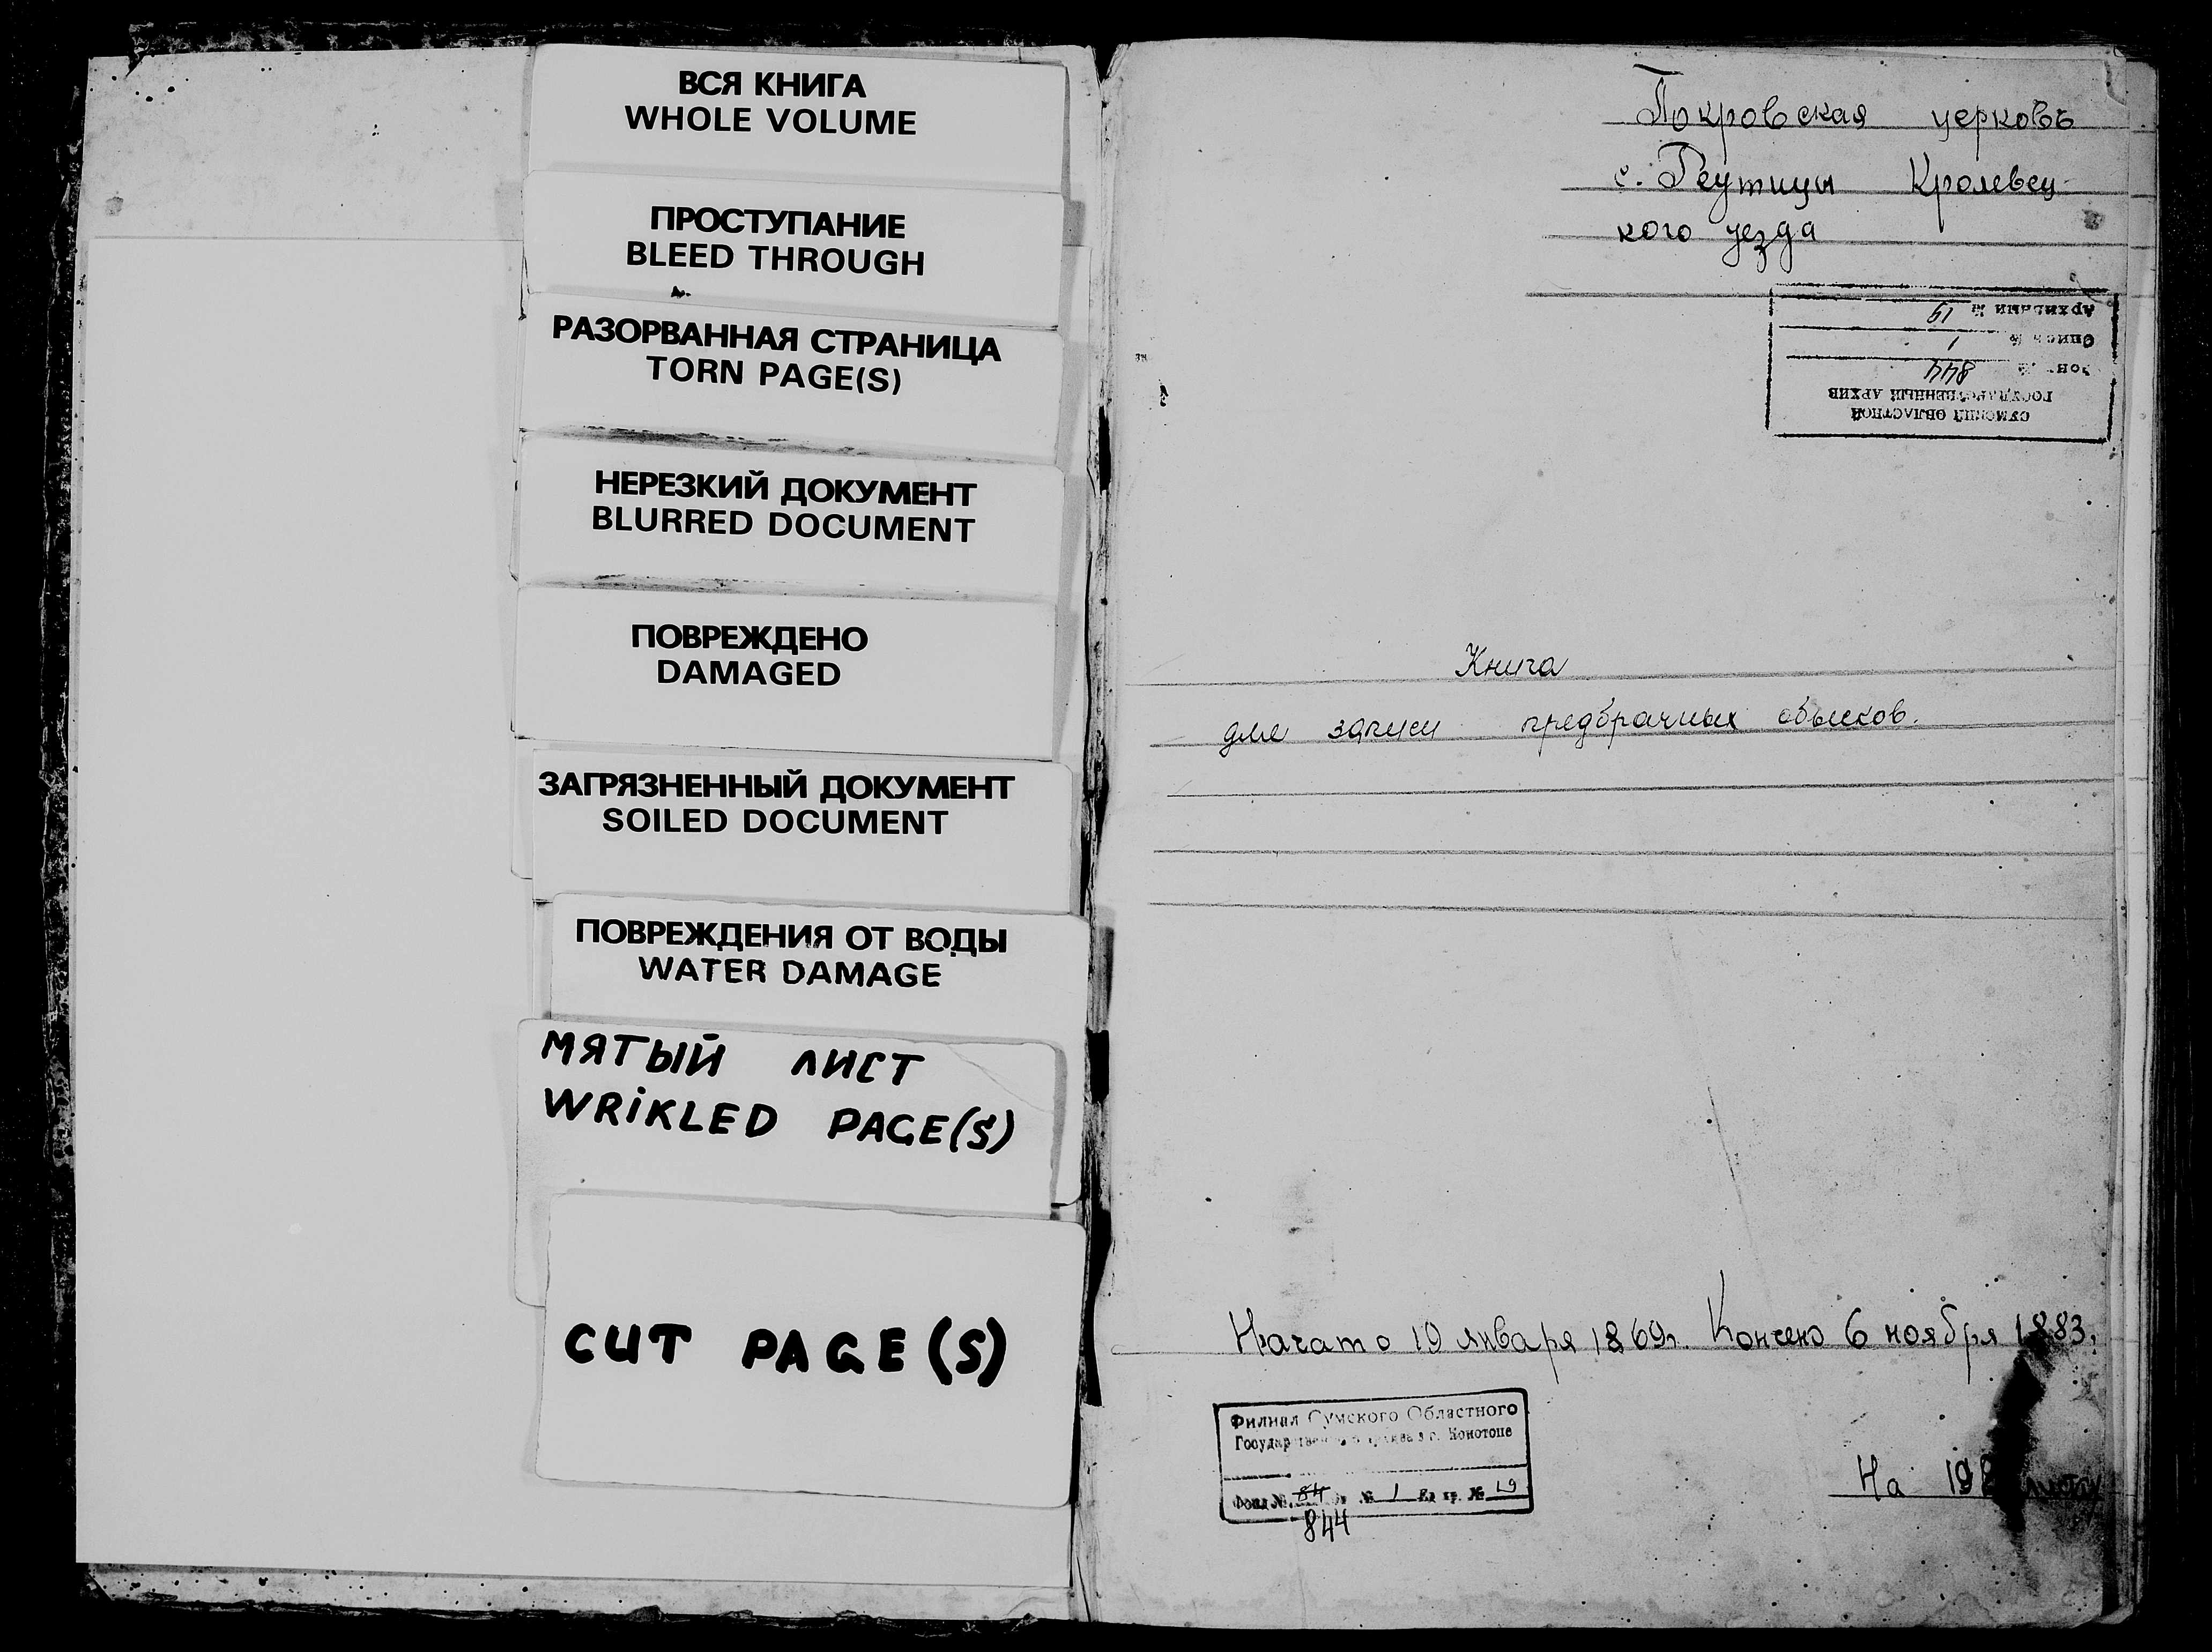 ВСЯ КНИГА
WHOLE VOLUME
ПРОСТУПАНИЕ
BLEED THROUGH
РАЗОРВАННАЯ СТРАНИЦА
TORN PAGE(S)
НЕРЕЗКИЙ ДОКУМЕНТ
BLURRED DOCUMENT
ПОВРЕЖДЕНО
DAMAGED
ЗАГРЯЗНЕННЫЙ ДОКУМЕНТ
SOILED DOCUMENT
ПОВРЕЖДЕНИЯ ОТ ВОДЫ
WATER DAMAGE
МЯТЫЙ ЛИСТ
WRIKLED PAGE(S)
CUT PAGE(S)
Покровская церковь
с. Реутицы Кролевец-
кого уезда
СУМСКИЙ ОБЛАСТНОЙ
ГОСУДАРСТВЕННЫЙ АРХИВ
Фонд № 844
Опись № 1
Архивный № 19
Книга
для записи предбрачных обысков.
Начато 19 января 1869г. Кончено 6 ноября 1883.
Филиал Сумского Областного
Государственного архива в г. Конотопе
Фонд № 84 № 1 Ед. хр. № 19
844
На